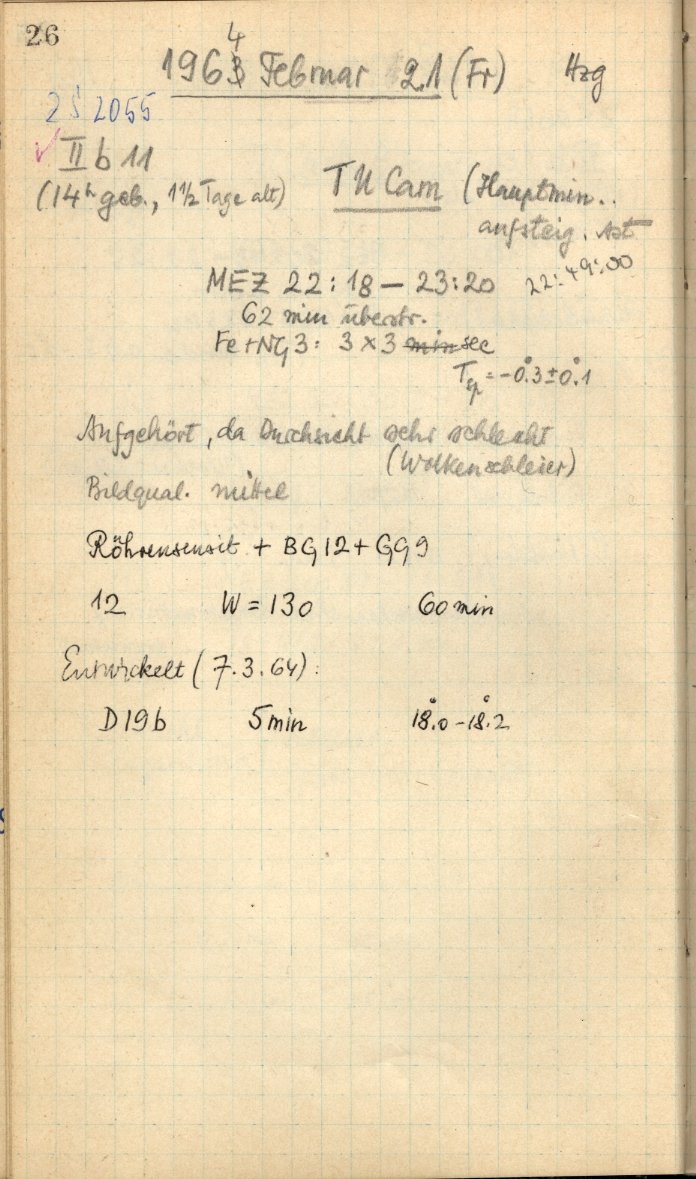 26
1964 Februar 21 (Fr) Hzg
2S 2055
II b 11
(14h geb., 1 1/2 Tage alt) TU Cam (Hauptmin..
aufsteig. Ast
MEZ 22:18 — 23:20 22:49:00
62 min überstr.
Fe + NG3: 3 x 3 min sec
Tsp = -0°.3 ± 0°.1
Aufgehört, da Durchsicht sehr schlecht
(Wolkenschleier)
Bildqual. mittel
Röhrensensit + BG12 + GG9
12 W = 130 60 min
Entwickelt (7.3.64):
D19b 5 min 18°.0 - 18°.2